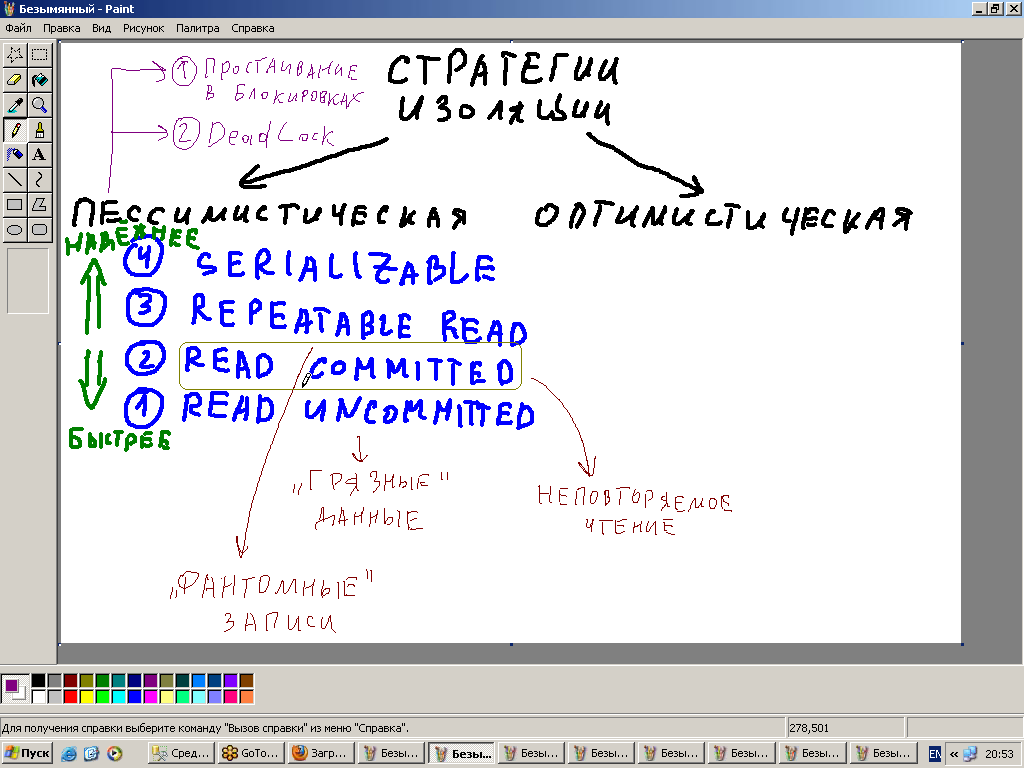 Безымянный - Paint
Файл Правка Вид Рисунок Палитра Справка
СТРАТЕГИИ
ИЗОЛЯЦИИ
1 ПРОСТАИВАНИЕ
В БЛОКИРОВКАХ
2 DeadLock
ПЕССИМИСТИЧЕСКАЯ ОПТИМИСТИЧЕСКАЯ
НАДЁЖНЕЕ
4 SERIALIZABLE
3 REPEATABLE READ
2 READ COMMITTED
1 READ UNCOMMITTED
БЫСТРЕЕ
„ГРЯЗНЫЕ"
ДАННЫЕ
НЕПОВТОРЯЕМОЕ
ЧТЕНИЕ
„ФАНТОМНЫЕ"
ЗАПИСИ
Для получения справки выберите команду "Вызов справки" из меню "Справка".
278,501
Пуск Сред... GoTo... Загр... Безы... Безы... Безы... Безы... Безы... Безы... Безы... Безы... EN « 20:53